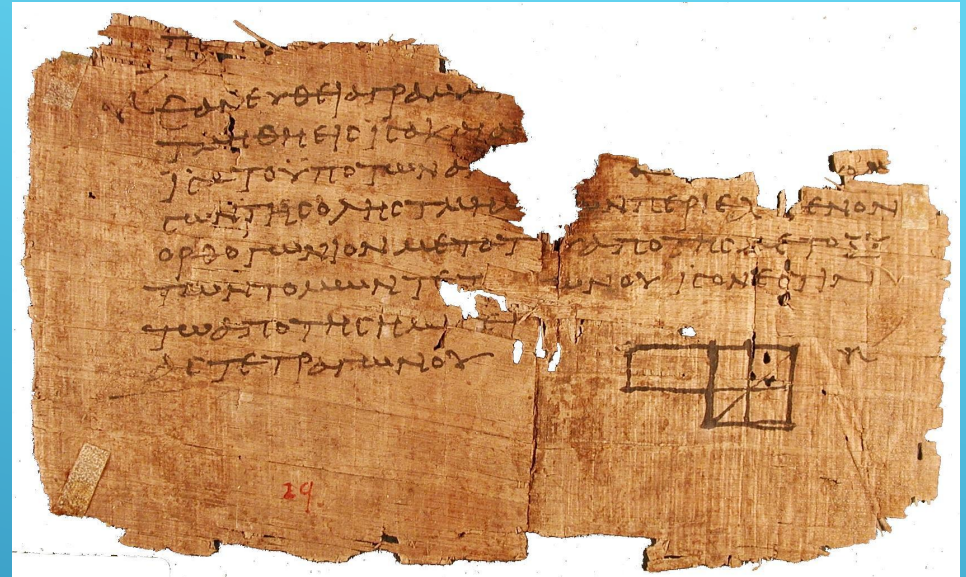 ΕΑΝΕΥΘΕΙΑΓΡΑΜΜ
ΤΜΗΘΗΕΙϹΙϹΑΚΑΙΑΝ
ΙϹΑΤΟΥΠΟΤΩΝΑ
ϹΩΝΤΗϹΟΛΗϹΤΜΗΜ ΩΝΠΕΡΙΕΧ ΜΕΝΟΝ
ΟΡΘΟΓΩΝΙΟΝΜΕΤΟΤ ΥΑΠΟΤΗϹΜΕΤΟΞΥ
ΤΩΝΤΟΜΩΝΤΕΤ ΩΝΟΥΙϹΟΝΕϹΤΙΝ
ΤΩΑΠΟΤΗϹΗΜΙϹΕΙ
ΑϹΤΕΤΡΑΓΩΝΟΥ
29